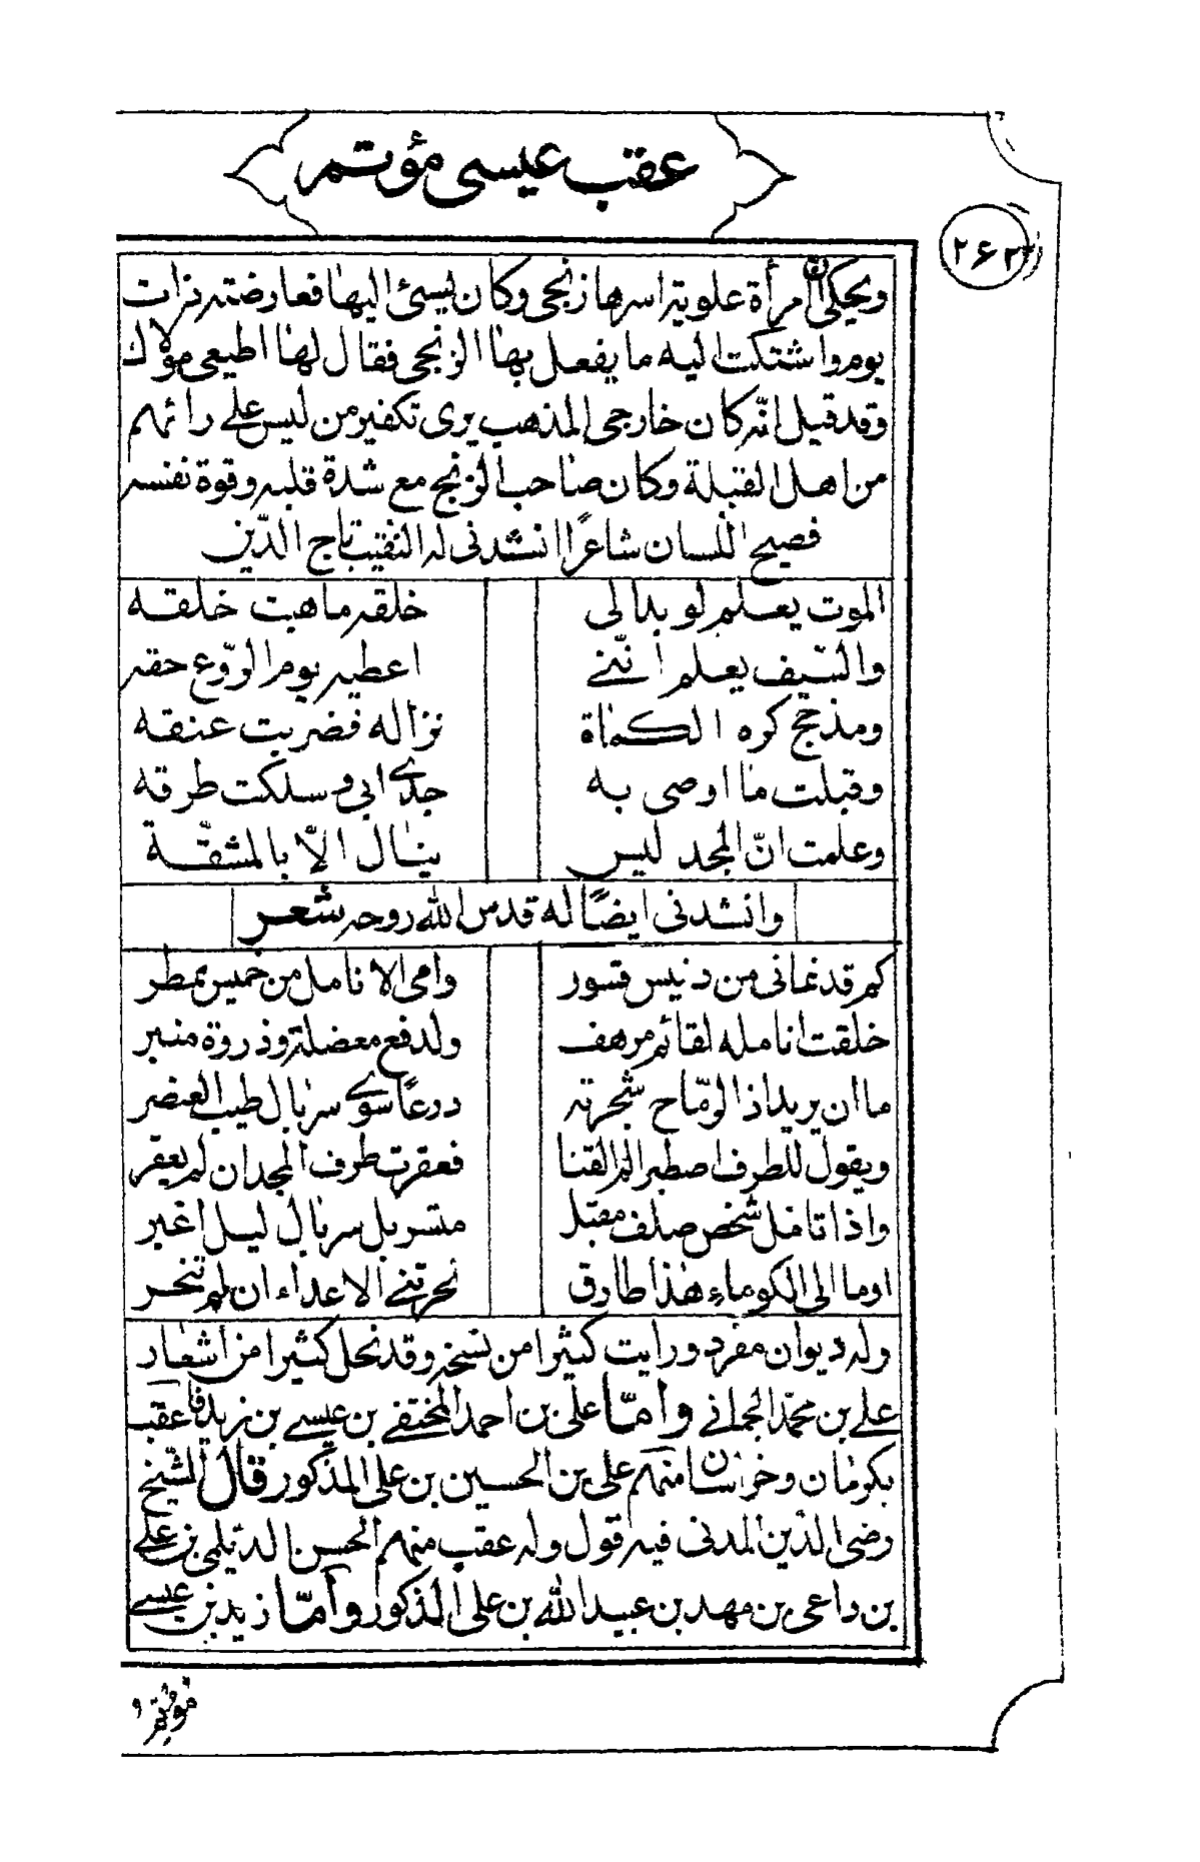 عقب عيسى مؤتمر
۲۶۲
ويحكى ان امرأة علوية اسرها زنجى وكان يسئ اليها فعارضته ذات
يوم واشتكت اليه ما يفعل بها الزنجى فقال لها اطيعى مولاك
وقد قيل انّه كان خارجى المذهب يرى تكفير من ليس على رائهم
من اهل القبلة وكان صاحب الزنج مع شدة قلبه وقوة نفسه
فصيح اللسان شاعرًا انشدنى له النقيب تاج الدّين
الموت يعلم لو بدا لى خلقه ما هبت خلقه
والسّيف يعلم انّنے اعطيه يوم الرّوع حقه
ومذحّج كره الكماة نزاله فضربت عنقه
وقبلت ما اوصى به جدے ابى وسلكت طرقه
وعلمت انّ المجد ليس ينال الّا بالمشقّة
وانشدنى ايضًا له قدس الله روحه شعر
كم قد نمانى من رئيس قسور وامى الانامل من خميس ممطر
خلقت انامله لقائم مرهف ولدفع معضلة وذروة منبر
ما ان يريد اذ الرّماح شجرته درعًا سوے سربال طيب العنصر
ويقول للطرف اصطبر لقنا فعقرت طرف المجد ان لم يعقر
واذا تامل شخص صلف مقبل متسربل سربال ليل اغبر
اوما الى الكوماء هذا طارق نحرتنے الاعداء ان لم تنحر
وله ديوان مفرد ورايت كثيرا من نسخه وقد نحل كثيرا من اشعار
علے بن محمّد الحمانے وامّا على بن احمد المختفے بن عيسے بن زيد فاعقب
بكرمان وخراسان منهم على بن الحسين بن على المذكور قال الشّيخ
رضى الدّين المدنى فيه قول وله عقب منهم الحسن الديلمى بن علے
بن داعى بن مهد بن عبيد الله بن على المذكور وامّا زيد بن عيسے